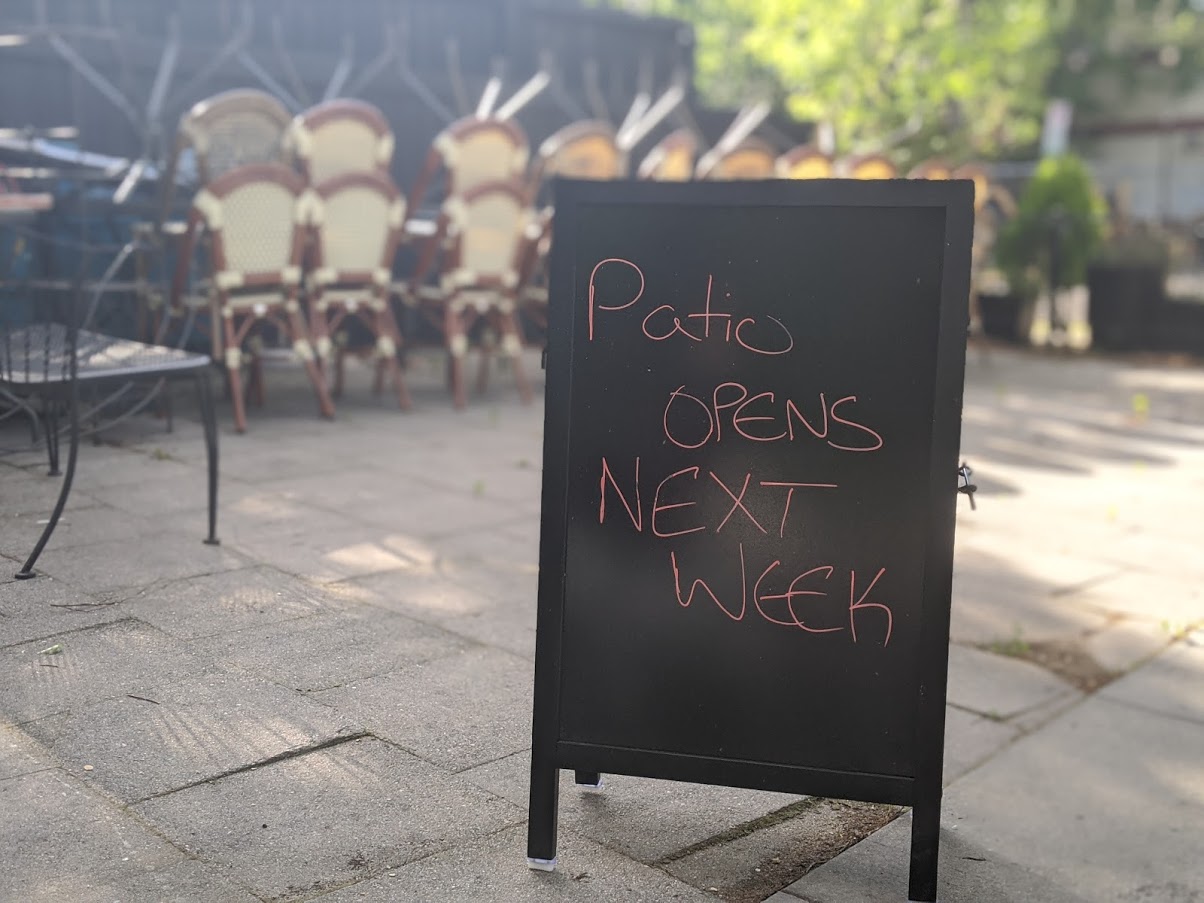 Patio
OPENS
NEXT
WEEK